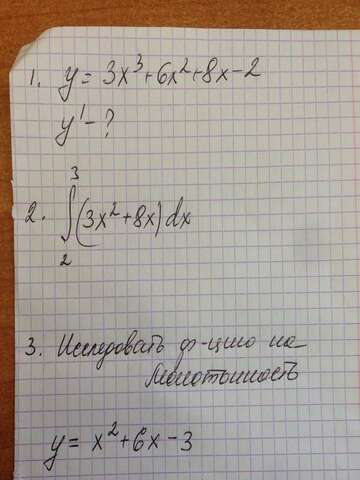 1. y = 3x³+6x²+8x-2
y' - ?
2. ∫₂³ (3x²+8x) dx
3. Исследовать ф-цию на
монотонность
y = x²+6x-3